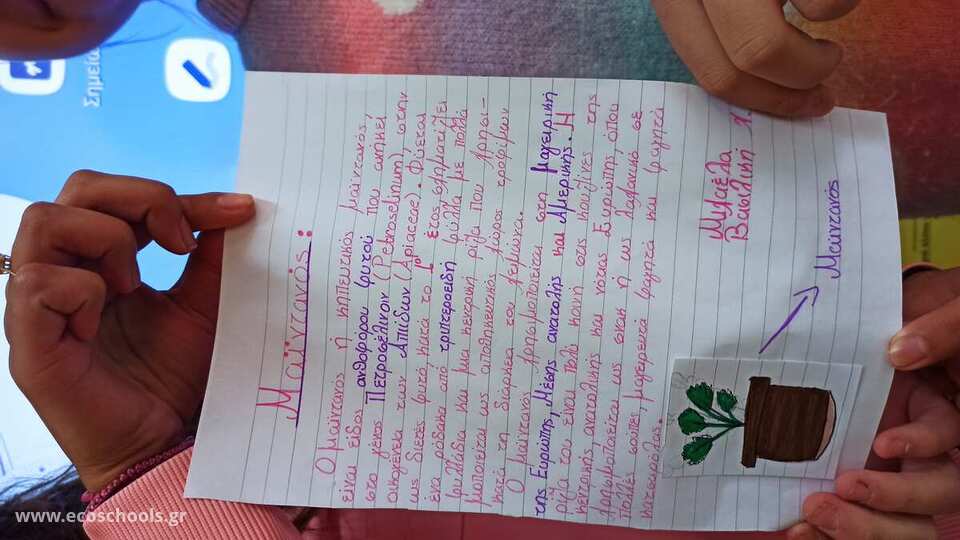 Μαϊντανός:
Ο μαϊντανός ή κηπευτικός μαϊντανός,
είναι είδος ανθοφόρου φυτού που ανήκει
στο γένος Πετροσέλινον (Petroselinum), στην
οικογένεια των Απιίδων (Apiaceae). Φύεται
ως διετές φυτό, κατά το 1ο έτος σχηματίζει
ένα ροδάκα από τριπτεροειδή φύλλα με πολλά
φυλλάδια και μια κεντρική ρίζα που χρησι-
μοποιείται ως αποθηκευτικός χώρος τροφίμων
κατά τη διάρκεια του χειμώνα.
Ο μαϊντανός χρησιμοποιείται στη μαγειρική
της Ευρώπης, Μέσης ανατολής και Αμερικής. Η
ρίζα του είναι πολύ κοινή στις κουζίνες της
κεντρικής ανατολικής και νότιας Ευρώπης, όπου
χρησιμοποιείται ως σνακ ή ως λαχανικό σε
πολλές σούπες, μαγειρευτά και φαγητά
κατσαρόλας.
Μιχαέλα
Βασιλική Χ.
Μαιντανός
Σημειώ
www.ecoschools.gr